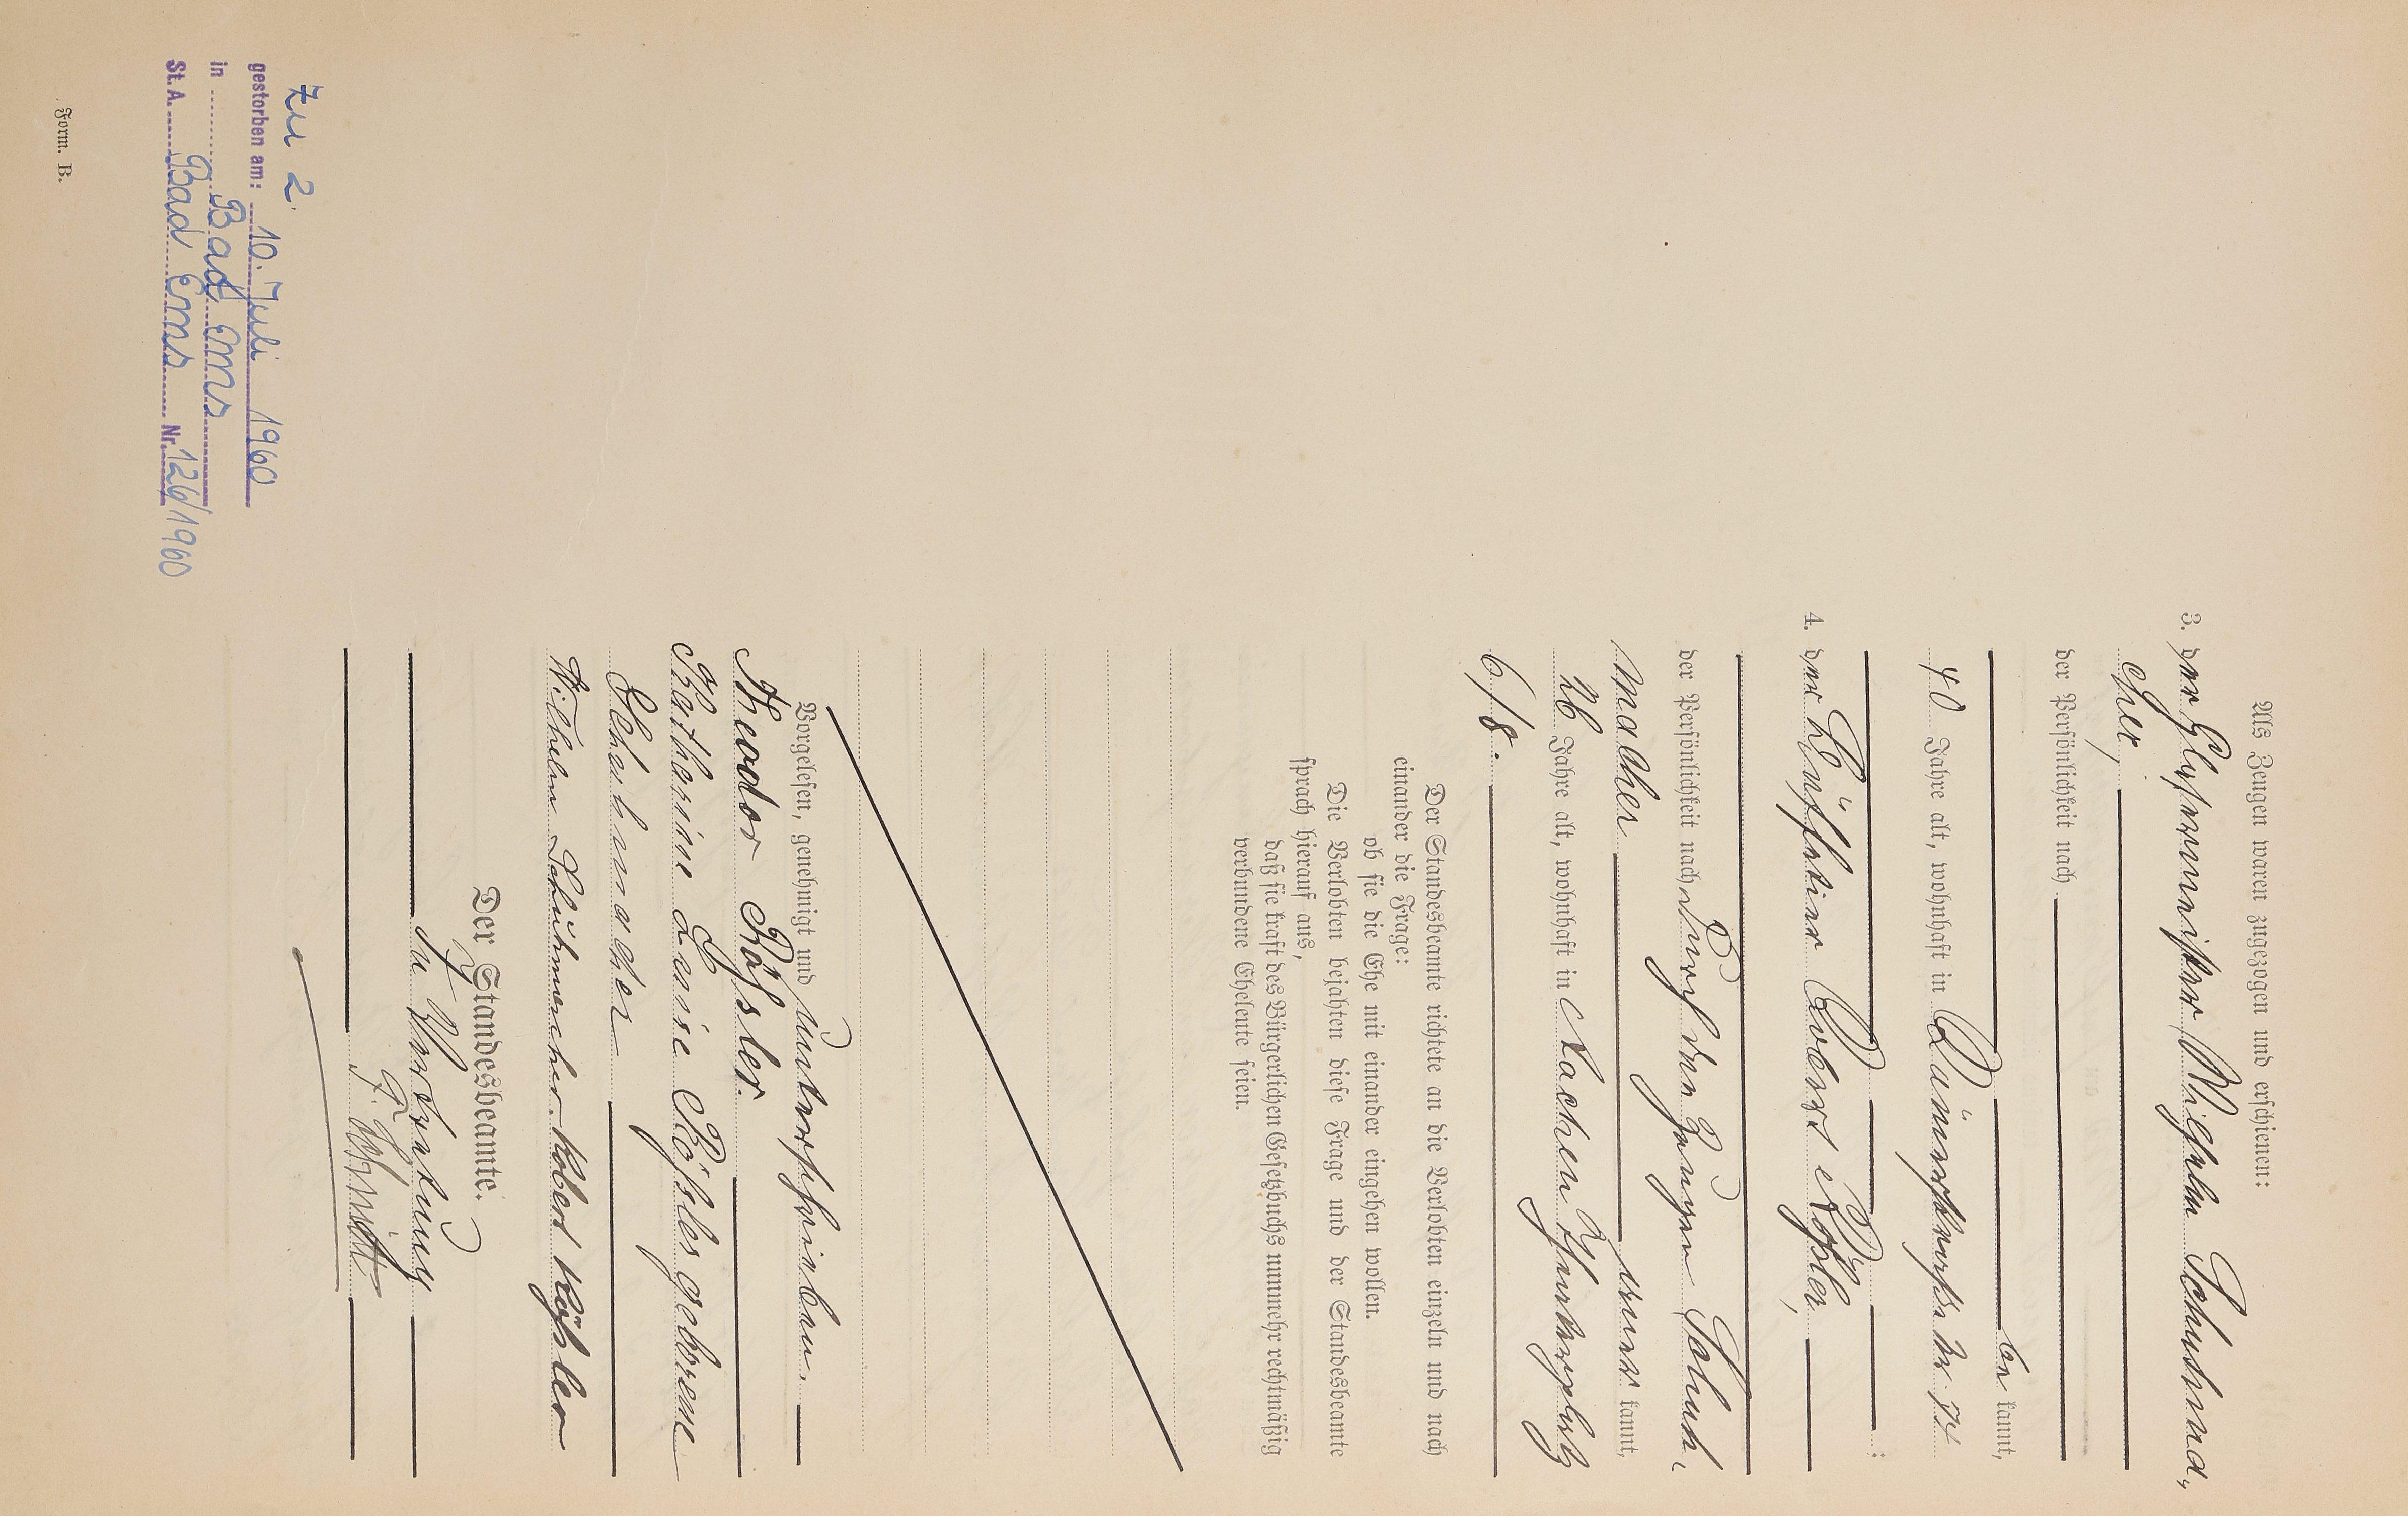 Als Zeugen waren zugezogen und erschienen:
3. der Glasermeister Wilhelm Schuhma-
cher,
der Persönlichkeit nach
be kannt,
40 Jahre alt, wohnhaft in
4. der Küfer Robert Roßler,
der Persönlichkeit nach durch den Zeugen Schuh-
macher aner kannt,
26 Jahre alt, wohnhaft in Aachen
6/8.
Der Standesbeamte richtete an die Verlobten einzeln und nach
einander die Frage:
ob sie die Ehe mit einander eingehen wollen.
Die Verlobten bejahten diese Frage und der Standesbeamte
sprach hierauf aus,
daß sie kraft des Bürgerlichen Gesetzbuchs nunmehr rechtmäßig
verbundene Eheleute seien.
Vorgelesen, genehmigt und unterschrieben.
Theodor Roßler.
Katharine Louise Roßler geborene
Schuhmacher
Wilhelm Schuhmacher. Robert Roßler
Der Standesbeamte.
In Vertretung
F. Schmitt
Zu 2.
gestorben am: 10. Juli 1960
in Bad Ems
St. A. Bad Ems Nr. 126/1960
Form. B.